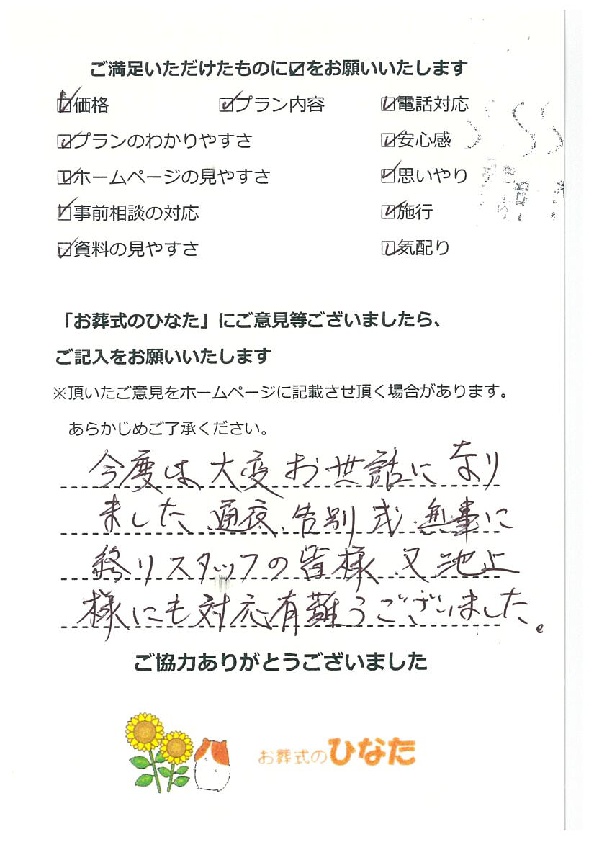 ご満足いただけたものに☑をお願いいたします
☑価格 ☑プラン内容 ☑電話対応
☑プランのわかりやすさ ☑安心感
☑ホームページの見やすさ ☑思いやり
☑事前相談の対応 ☑施行
☑資料の見やすさ ☑気配り
「お葬式のひなた」にご意見等ございましたら、
ご記入をお願いいたします
※頂いたご意見をホームページに記載させ頂く場合があります。
あらかじめご了承ください。
今度は大変お世話になり
ました、通夜、告別式、無事に
終りスタッフの皆様、又池上
様にも対応有難うございました。
ご協力ありがとうございました
お葬式のひなた